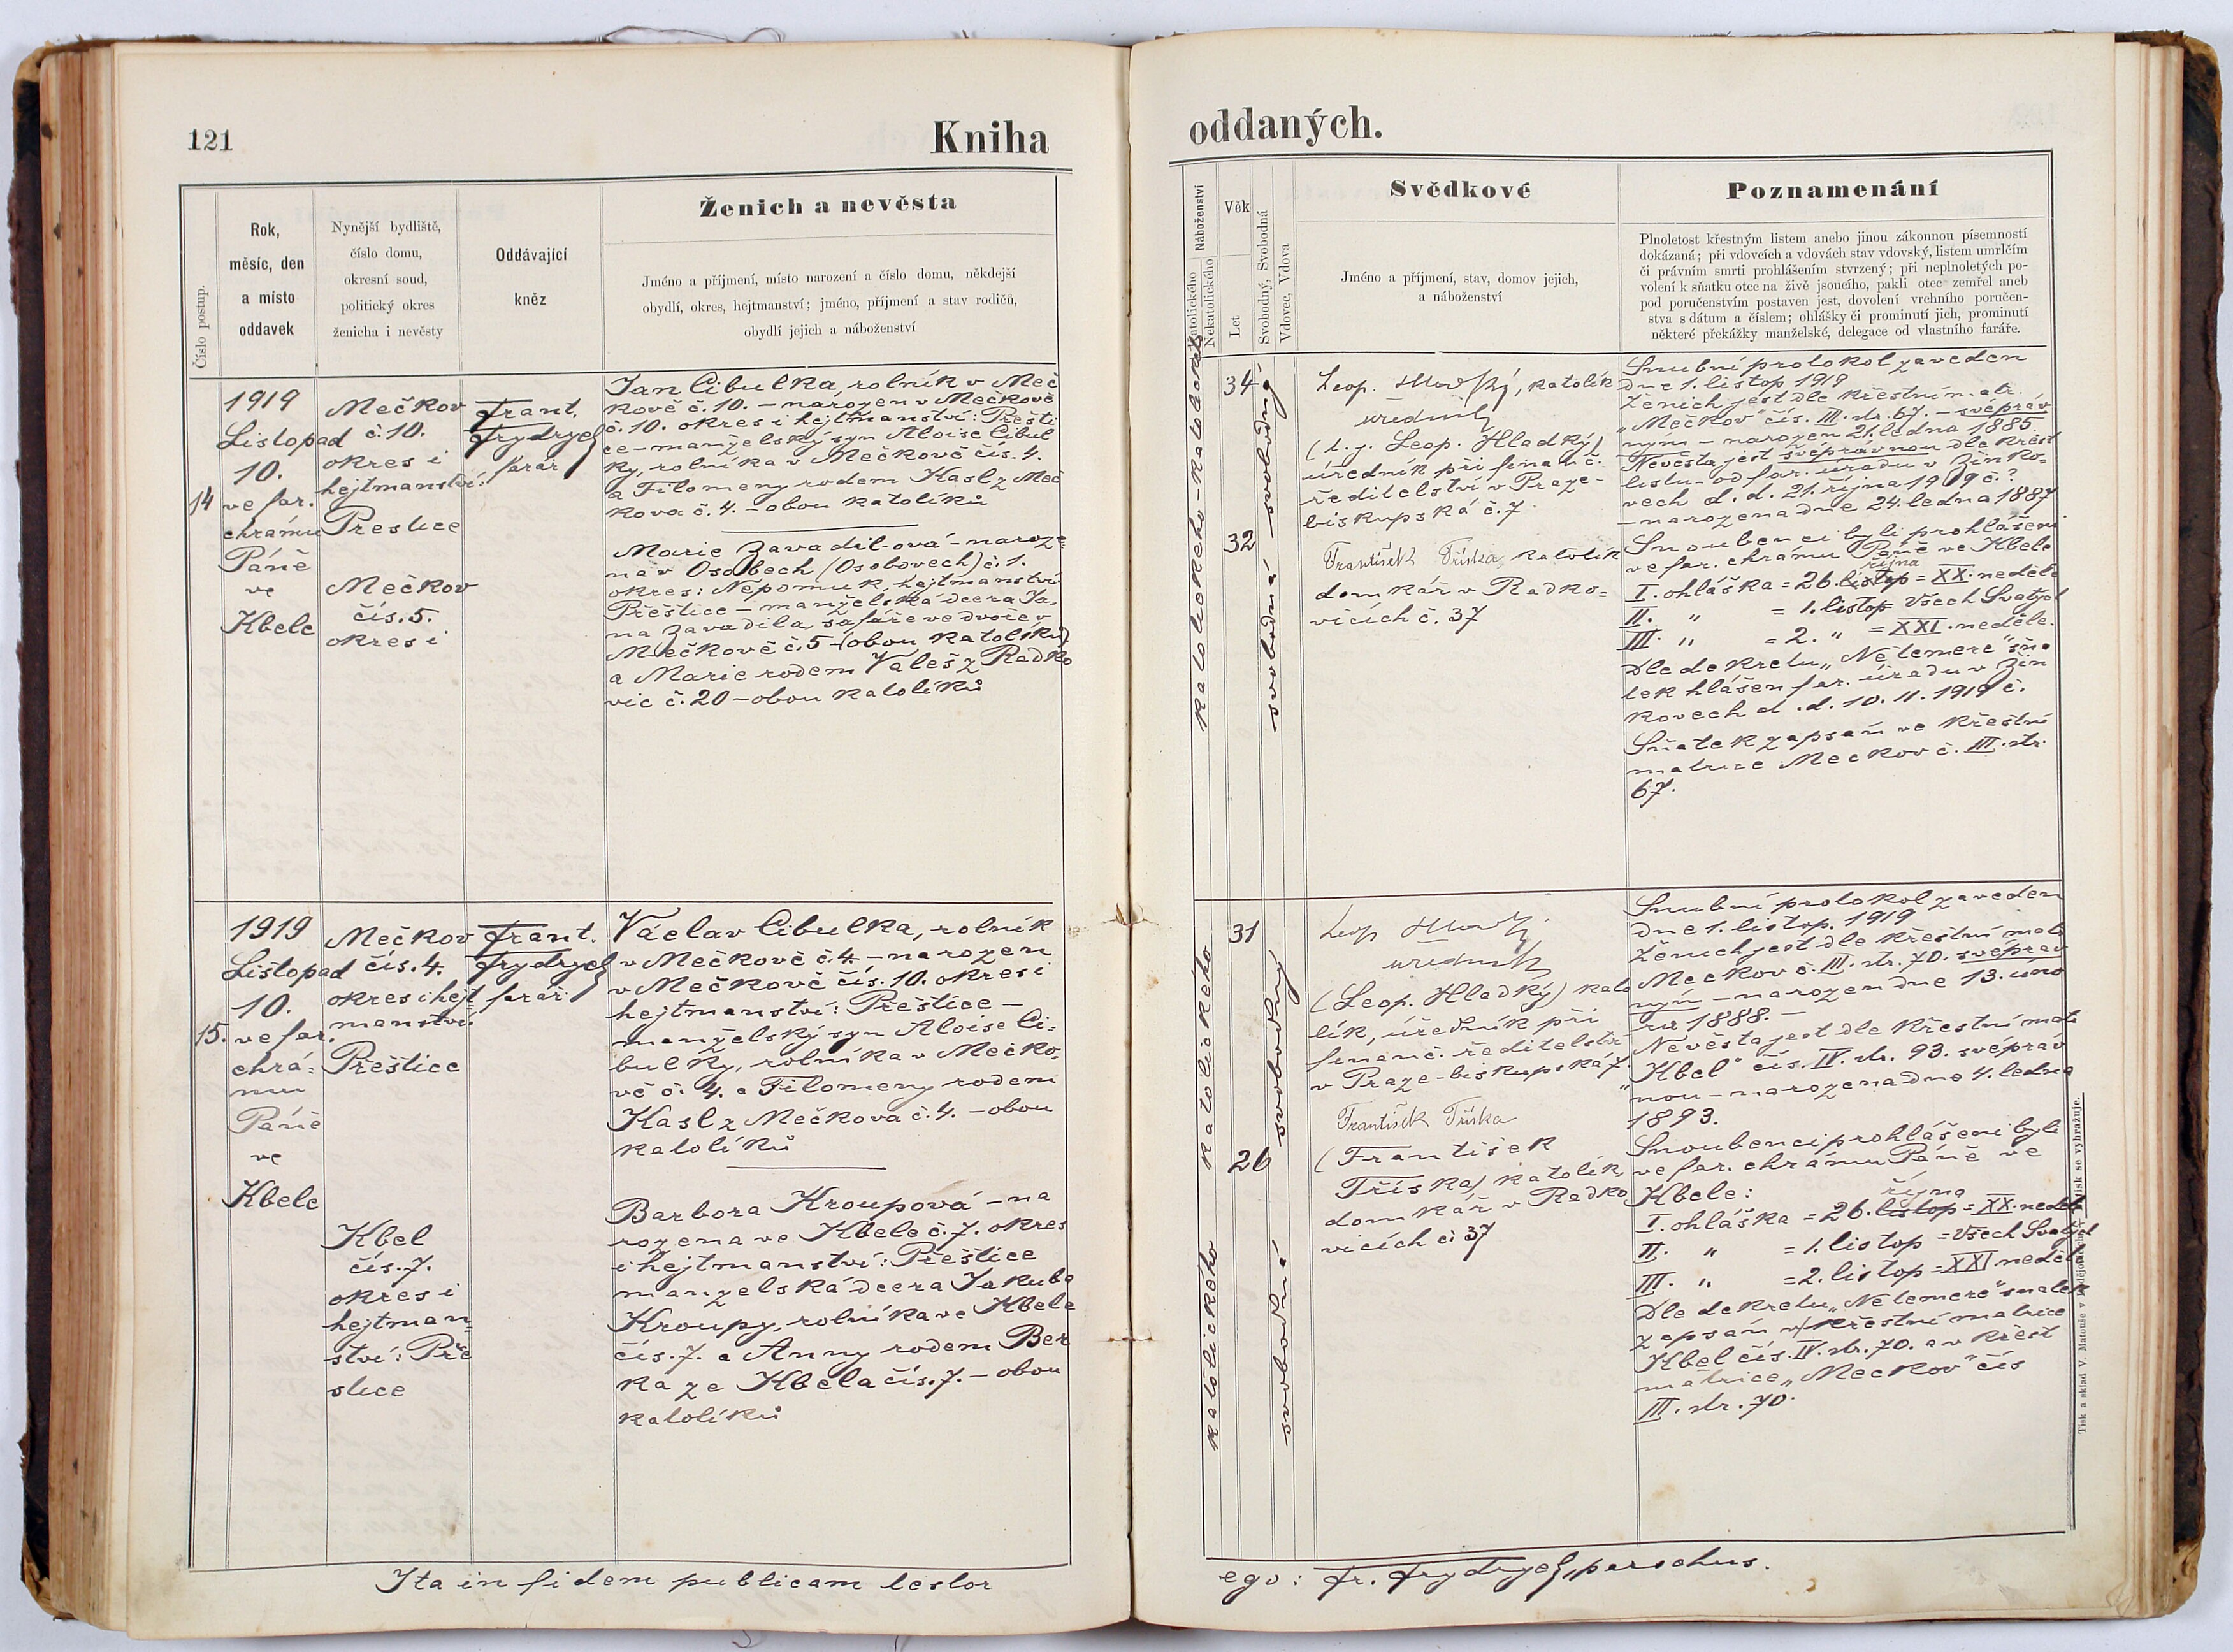 121
Kniha
oddaných.
Číslo postup.
Rok,
měsíc, den
a místo
oddavek
Nynější bydliště,
číslo domu,
okresní soud,
politický okres
ženicha i nevěsty
Oddávající
kněz
Ženich a nevěsta
Jméno a příjmení, místo narození a číslo domu, někdejší
obydlí, okres, hejtmanství; jméno, příjmení a stav rodičů,
obydlí jejich a náboženství
Náboženství
Katolického
Nekatolického
Věk
Let
Svobodný, Svobodná
Vdovec, Vdova
Svědkové
Jméno a příjmení, stav, domov jejich,
a náboženství
Poznamenání
Plnoletost křestným listem anebo jinou zákonnou písemností
dokázaná; při vdovcích a vdovách stav vdovský, listem umrlčím
či právním smrti prohlášením stvrzený; při neplnoletých po-
volení k sňatku otce na živě jsoucího, pakli otec zemřel aneb
pod poručenstvím postaven jest, dovolení vrchního poručen-
stva s dátum a číslem; ohlášky či prominutí jich, prominutí
některé překážky manželské, delegace od vlastního faráře.
14
1919
Listopad
10.
ve far.
chrámu
Páně
ve
Kbele
Mečkov
č. 10.
okres i
hejtmanství:
Přeslice
Mečkov
čís. 5.
okres i
Frant.
Frydrych
farář
Jan Cibulka, rolník v Meč
kově č. 10. – narozen v Mečkově
č. 10. okres i hejtmanství: Přešti
ce – manželský syn Aloise Cibul
ky, rolníka v Mečkově čís. 4.
a Filomeny rodem Kasl z Meč
kova č. 4. – obou katolíků
Marie Zavadil-ová – naroze
na v Osobech (Osobovech) č. 1.
okres: Nepomuk, hejtmanství
Přeštice – manželská dcera Ja-
na Zavadila šafáře ve dvoře v
Mečkově č. 5 – (obou katolíků)
a Marie rodem Valeš z Radko
vic č. 20 – obou katolíků
katolického – katolického
34
32
svobodná – svobodný
Leop. Hladký, katolík
úředník
(t. j. Leop. Hladký)
úředník při finanč.
ředitelství v Praze –
biskupská č. 7.
František Tříska, katolík
domkář v Radko=
vicích č. 37
Snubní protokol zaveden
dne 1. listop 1919
Ženich jest dle křestní matr.
„Mečkov“ čís. III. str. 67. – svépráv
ným – narozen 21. ledna 1885.
Nevěsta jest svéprávnou dle křest
listu – od far. úřadu v Žinko=
vech d. d. 21. října 1919 č. ?
– narozena dne 24. ledna 1887
Snoubenci byli prohlášeni
ve far. chrámu Páně ve Kbele
října
I. ohláška = 26. listop = XX. neděle
II. „ = 1. listop = Všech Svatých
III. „ = 2. „ = XXI. neděle.
Dle dekretu „Ne temere“ sňa
tek hlášen far. úřadu v Žin
kovech d. d. 10. 11. 1919 č.
Sňatek zapsán ve křestní
matrice Mečkov č. III. str.
67.
15.
1919
Listopad
10.
ve far.
chrá-
mu
Páně
ve
Kbele
Mečkov
čís. 4.
okres i hejt
manství:
Přeštice
Kbel
čís. 7.
okres i
hejtman=
ství: Pře
slice
Frant.
Frydrych
farář
Václav Cibulka, rolník
v Mečkově č. 4. – narozen
v Mečkově čís. 10. okres i
hejtmanství: Přeštice –
manželský syn Aloise Ci-
bulky, rolníka v Mečko-
vě č. 4. a Filomeny rodem
Kasl z Mečkova č. 4. – obou
katolíků
Barbora Kroupová – na
rozena ve Kbele č. 7. okres
i hejtmanství: Přeštice
manželská dcera Jakuba
Kroupy, rolníka ve Kbele
čís. 7. a Anny rodem Ber
ka ze Kbela čís. 7. – obou
katolíků
katolického katolického
31
26
svobodná svobodný
Leop Hladký.
úředník
(Leop. Hladký) kato
lík, úředník při
finanč. ředitelství
v Praze – biskupská 7.
František Tříska
(František
Tříska) katolík
domkář v Radko
vicích č. 37
Snubní protokol zaveden
dne 1. listop. 1919
Ženich jest dle křestní matr
Mečkov č. III. str. 70. svépráv
ným – narozen dne 13. úno
ra 1888. –
Nevěsta jest dle křestní mat.
„Kbel“ čís. IV. str. 93. svépráv
nou – narozena dne 4. ledna
1893.
Snoubenci prohlášeni byli
ve far. chrámu Páně ve
Kbele:
října
I. ohláška = 26. listop = XX. neděle
II. „ = 1. listop = Všech Svatých
III. „ = 2. listop = XXI neděle
Dle dekretu „Ne temere“ sňatek
zapsán v křestní matrice
Kbel čís. IV. str. 70. a v křest
matrice „Mečkov“ čís
III. str. 70.
Tisk a sklad V. Matouše v
tisk se vyhražuje.
Ita in fidem publicam testor
ego: Fr. Frydrych, parochus.